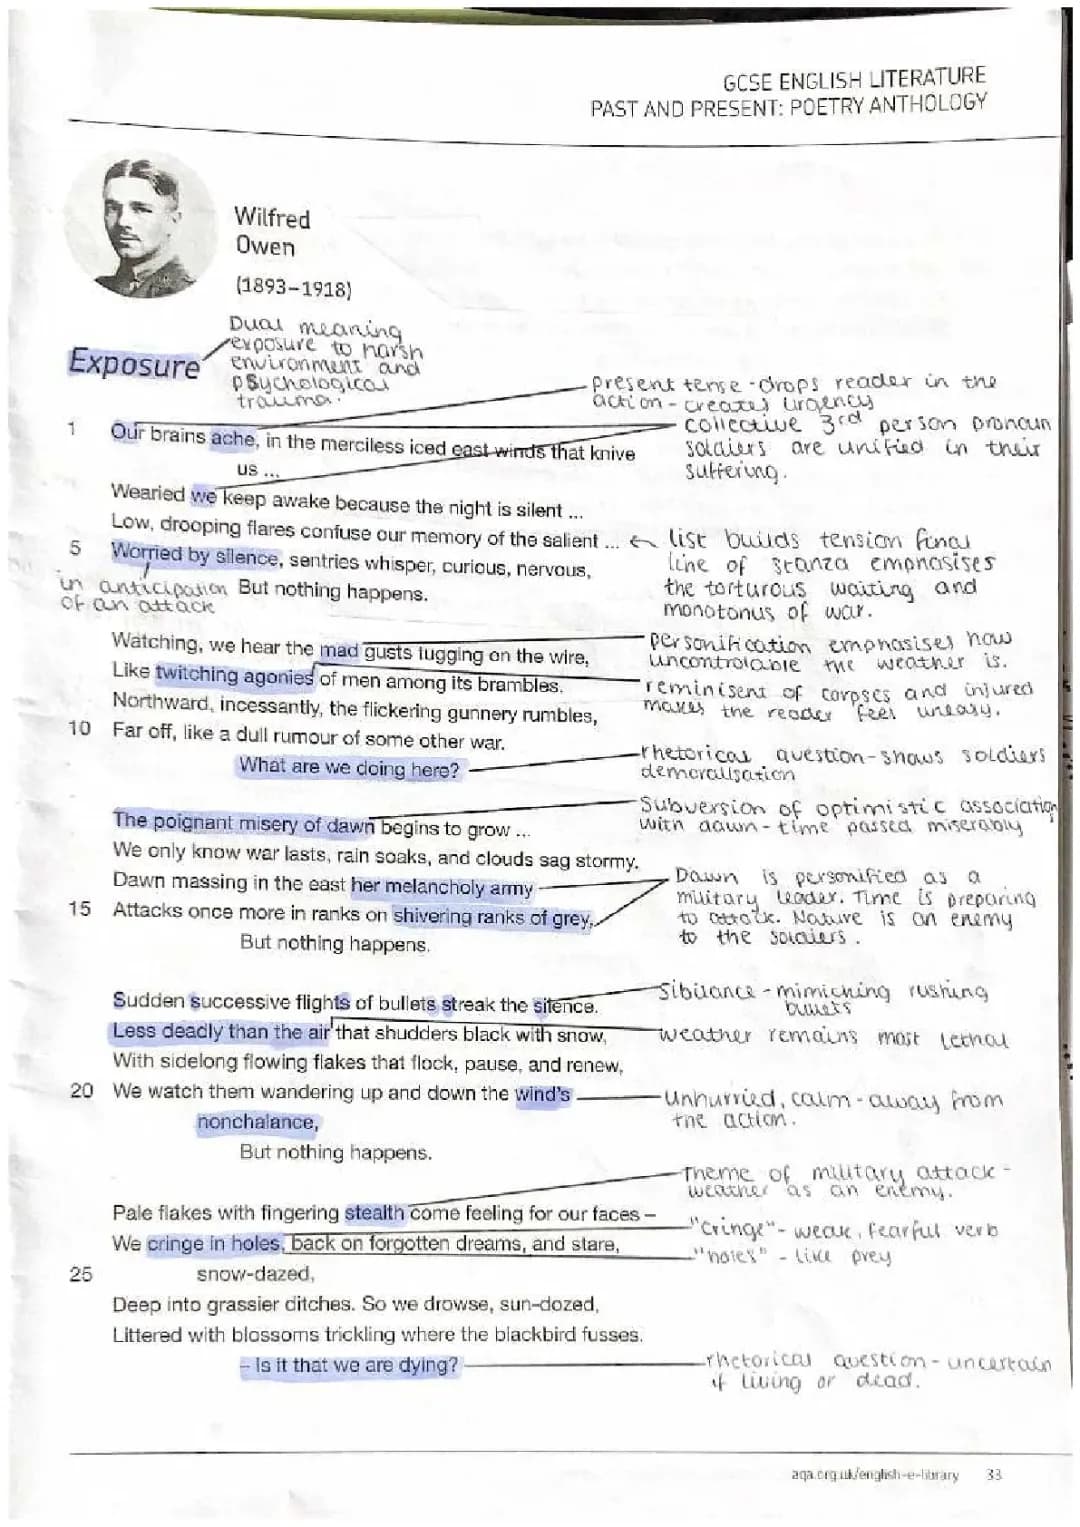 GCSE ENGLISH LITERATURE
PAST AND PRESENT: POETRY ANTHOLOGY
Wilfred
Owen
(1893–1918)
Dual meaning
exposure to harsh
environment and
psychological
trauma.
Exposure
present tense - drops reader in the
action - creates urgency
collective 3rd person pronoun
soldiers are unified in their
suffering.
1 Our brains ache, in the merciless iced east winds that knive
us ...
Wearied we keep awake because the night is silent ...
Low, drooping flares confuse our memory of the salient ...
5 Worried by silence, sentries whisper, curious, nervous,
But nothing happens.
in anticipation
of an attack
list builds tension final
line of stanza emphasises
the torturous waiting and
monotonus of war.
Watching, we hear the mad gusts tugging on the wire,
Like twitching agonies of men among its brambles.
Northward, incessantly, the flickering gunnery rumbles,
10 Far off, like a dull rumour of some other war.
What are we doing here?
personification emphasises how
uncontrolable the weather is.
reminisent of corpses and injured
makes the reader feel uneasy.
rhetorical question - shows soldiers
demoralisation
Subversion of optimistic association
with dawn - time passed miserably
The poignant misery of dawn begins to grow ...
We only know war lasts, rain soaks, and clouds sag stormy.
Dawn massing in the east her melancholy army
15 Attacks once more in ranks on shivering ranks of grey,
But nothing happens.
Dawn is personified as a
military leader. Time is preparing
to attack. Nature is an enemy
to the soldiers.
Sudden successive flights of bullets streak the silence.
Less deadly than the air that shudders black with snow,
With sidelong flowing flakes that flock, pause, and renew,
20 We watch them wandering up and down the wind's
nonchalance,
But nothing happens.
Sibilance - mimicking rushing
bullets
weather remains most lethal
Unhurried, calm - away from
the action.
Theme of military attack -
weather as an enemy.
Pale flakes with fingering stealth come feeling for our faces –
We cringe in holes, back on forgotten dreams, and stare,
25 snow-dazed,
Deep into grassier ditches. So we drowse, sun-dozed,
Littered with blossoms trickling where the blackbird fusses.
– Is it that we are dying?
"Cringe" - weak, fearful verb
"holes" - like prey
rhetorical question - uncertain
if living or dead.
aqa.org.uk/english-e-library 33